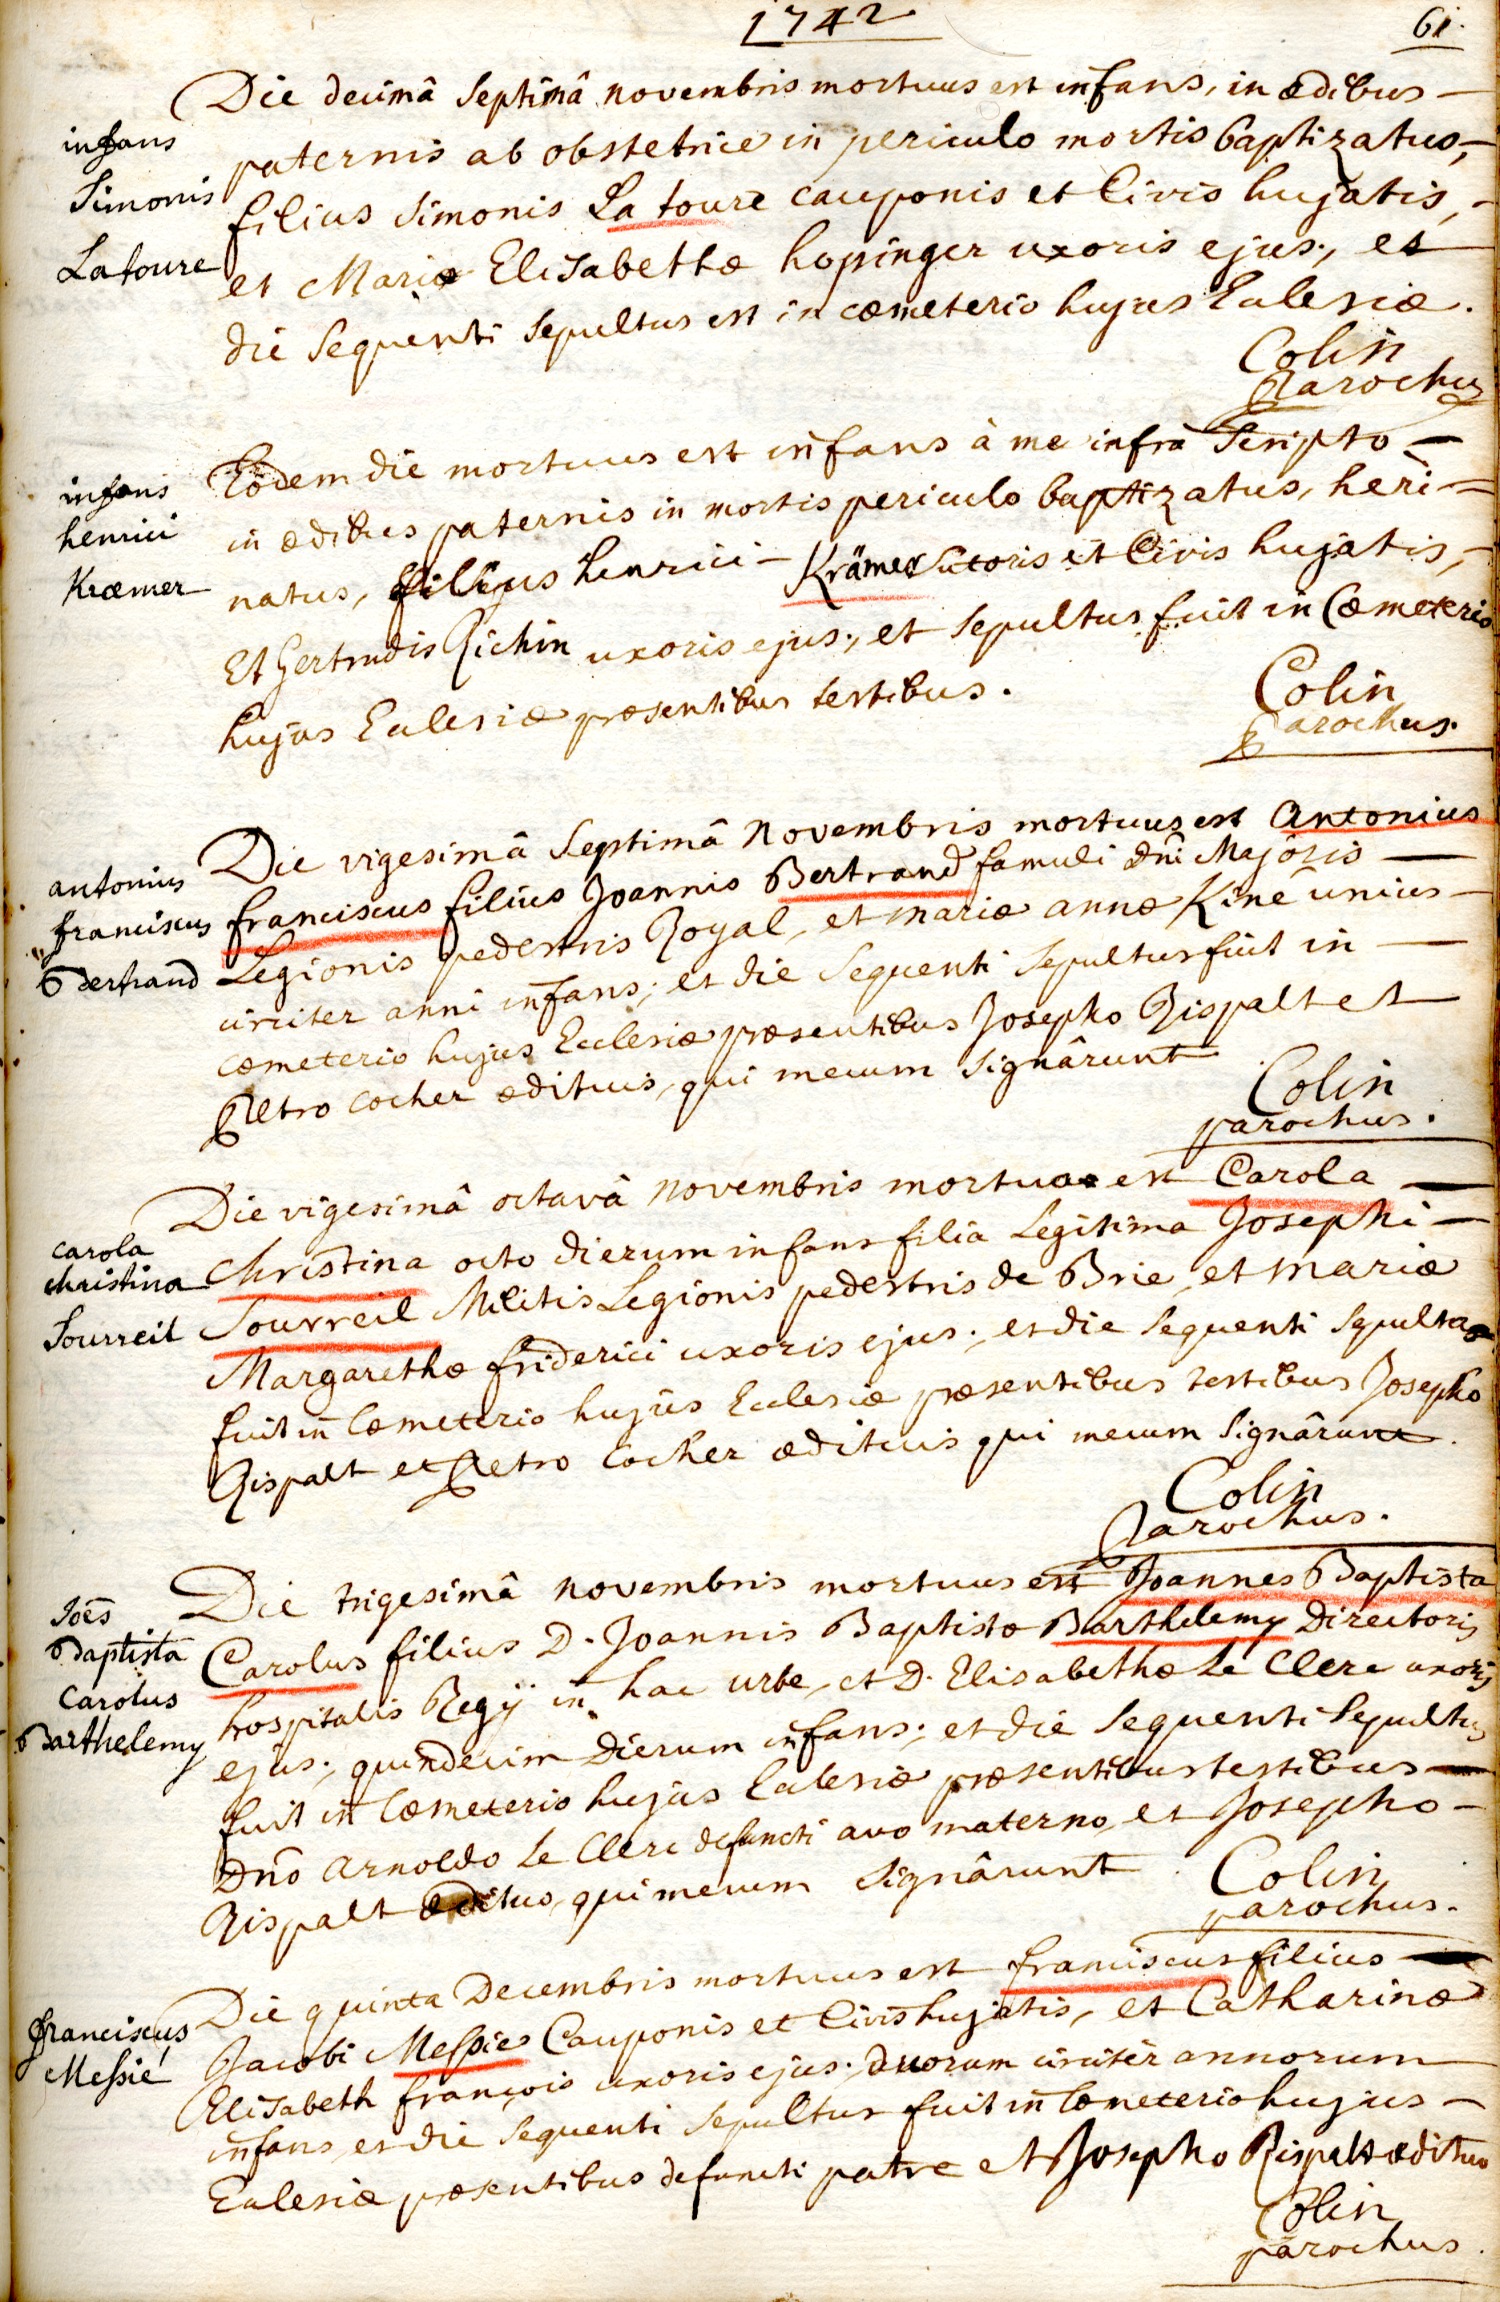 1742
61.
Die decimâ Septimâ novembris mortuus est infans, in ædibus
infans
Simonis
Latoure
paternis ab obstetrice in periculo mortis baptizatus,
filius Simonis La toure cauponis et Civis hujatis,
et Mariæ Elisabethæ hopinger uxoris ejus, et
die Sequenti Sepultus est in cœmeterio hujus Ecclesiæ.
Colin
Parochus
Eodem die mortuus est infans à me infrà Scripto
infans
henrici
Kræmer
in ædibus paternis in mortis periculo baptizatus, heri
natus, filius henrici Krämer Sutoris et Civis hujatis,
Et Gertrudis Richin uxoris ejus, et Sepultus fuit in Cœmeterio
hujus Ecclesiæ præsentibus testibus.
Colin
Parochus.
Die vigesimâ Septimâ Novembris mortuus est Antonius
antonius
franciscus
Bertrand
franciscus filius Joannis Bertrand famuli Dni Majoris
Legionis pedestris Royal, et mariæ annæ Kine unius
circiter anni infans; et die Sequenti Sepultus fuit in
cœmeterio hujus Ecclesiæ præsentibus Josepho Rispalt et
Petro Cocher ædituis, qui mecum Signârunt
Colin
parochus.
Die vigesimâ octavâ Novembris mortua est Carola
Carola
christina
Sourreil
Christina octo dierum infans filia Legitima Josephi
Sourreil Militis Legionis pedestris de Brie, et Mariæ
Margarethæ friderici uxoris ejus; et die Sequenti Sepulta
fuit in Cœmeterio hujus Ecclesiæ præsentibus testibus Josepho
Rispalt et Petro Cocher ædituis qui mecum Signârunt.
Colin
Parochus.
Die trigesimâ novembris mortuus est Joannes Baptista
Joës
Baptista
Carolus
Barthelemy
Carolus filius D. Joannis Baptistæ Barthelemy Directoris
hospitalis Regij in hac urbe, et D. Elisabethæ Le Clerc uxoris
ejus; quindecim Dierum infans; et die Sequenti Sepultus
fuit in Cœmeterio hujus Ecclesiæ præsentibus testibus
Dno Arnoldo Le Clerc defuncti avo materno, et Josepho
Rispalt ædituo, qui mecum Signârunt
Colin
parochus.
Die quinta Decembris mortuus est franciscus filius
franciscus
Messié
Jacobi Messie Cauponis et Civis hujatis, et Catharinæ
Elisabeth françois uxoris ejus; duorum circiter annorum
infans, et die Sequenti Sepultus fuit in Cœmeterio hujus
Ecclesiæ præsentibus defuncti patre et Josepho Rispalt ædituo
Colin
parochus.